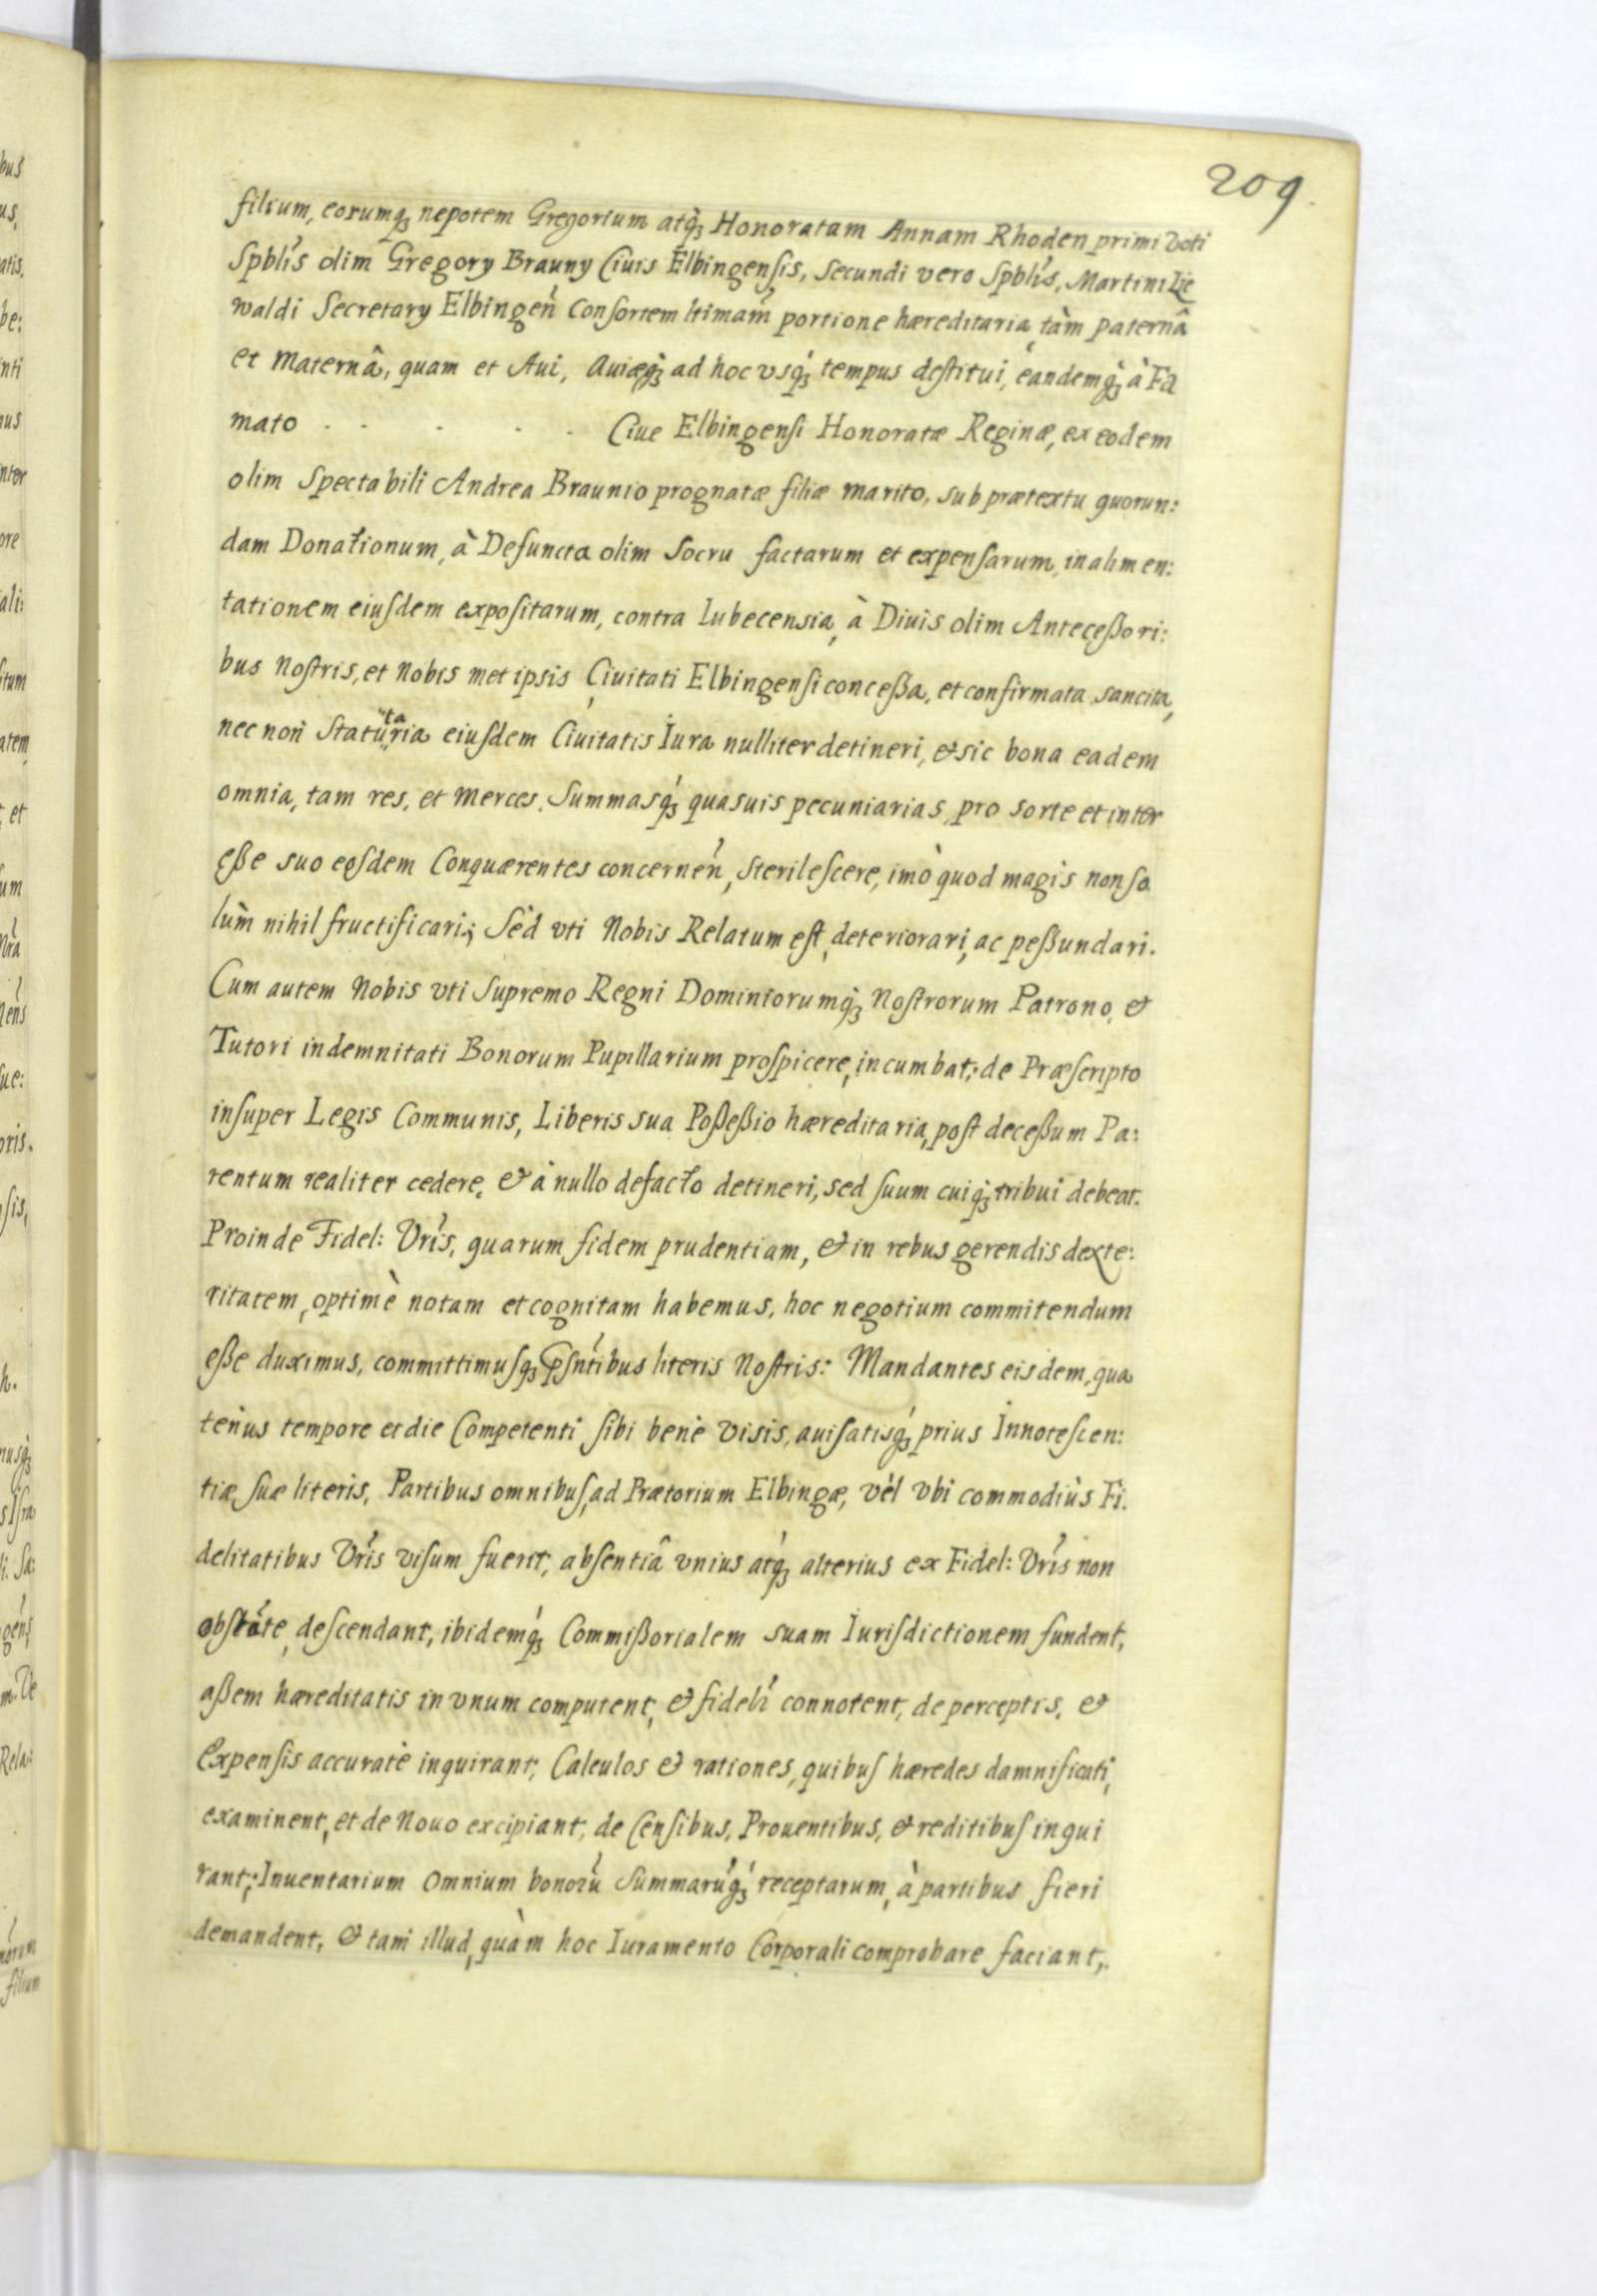 209.
filium, eorumq́ꝫ nepotem Gregorium atq́ꝫ Honoratam Annam Rhoden primi voti
Spblis olim Gregory Brauny Ciuis Elbingensis, Secundi vero Spblis, Martini Lie
waldi Secretary Elbingeñ Consortem ltimam portione hæreditaria, tàm paternâ
et Maternâ, quam et Aui, Auiæq́ꝫ ad hoc vsq́ꝫ tempus destitui, eandemq́ꝫ à Fa
mato . . . . . Ciue Elbingensi Honoratæ Reginæ, ex eodem
olim Spectabili Andrea Braunio prognatæ filiæ marito, sub prætextu quorun:
dam Donationum, à Defuncta olim Socru factarum et expensarum, in alimen:
tationem eiusdem expositarum, contra Lubecensia, à Diuis olim Anteceßori:
bus Nostris, et Nobis met ipsis Ciuitati Elbingensi conceßa, et confirmata sancita,
nec non Statutaria eiusdem Ciuitatis Iura nulliter detineri, & sic bona eadem
omnia, tam res, et Merces, Summasq́ꝫ quasuis pecuniarias, pro sorte et inter
eße suo eosdem Conquærentes concerneñ, Sterilescere, imò quod magis non so
lùm nihil fructificari; Sèd vti Nobis Relatum est, deteriorari, ac peßundari.
Cum autem Nobis vti Supremo Regni Dominiorumq́ꝫ Nostrorum Patrono, &
Tutori indemnitati Bonorum Pupillarium prospicere, incumbat; de Præscripto
insuper Legis Communis, Liberis sua Poßeßio hæreditaria, post deceßum Pa:
rentum realiter cedere, & à nullo defacto detineri, sed suum cuiq́ꝫ tribui debeat.
Proinde Fidel: Vris, quarum fidem prudentiam, & in rebus gerendis dexte:
ritatem, optimè notam et cognitam habemus, hoc negotium commitendum
eße duximus, committimusq́ꝫ psntibus literis Nostris: Mandantes eisdem, qua
tenùs tempore et die Competenti sibi benè visis, auisatisq́ꝫ prius Innotescen:
tiæ suæ literis, Partibus omnibus, ad Prætorium Elbingæ, vèl vbi commodiùs Fi.
delitatibus Vris visum fuerit, absentiâ vnius atq́ꝫ alterius ex Fidel: Vris non
obstãte, descendant, ibidemq́ꝫ Commißorialem suam Iurisdictionem fundent,
aßem hæreditatis in vnum computent, & fideli connotent, de perceptis, &
Expensis accuratè inquirant; Calculos & rationes, quibus hæredes damnificati,
examinent, et de Nouo excipiant, de Censibus, Prouentibus, & reditibus inqui
rant; Inuentarium Omnium bonorũ Summarũq́ꝫ receptarum, à partibus fieri
demandent, & tam illud, quàm hoc Iuramento Corporali comprobare faciant,.